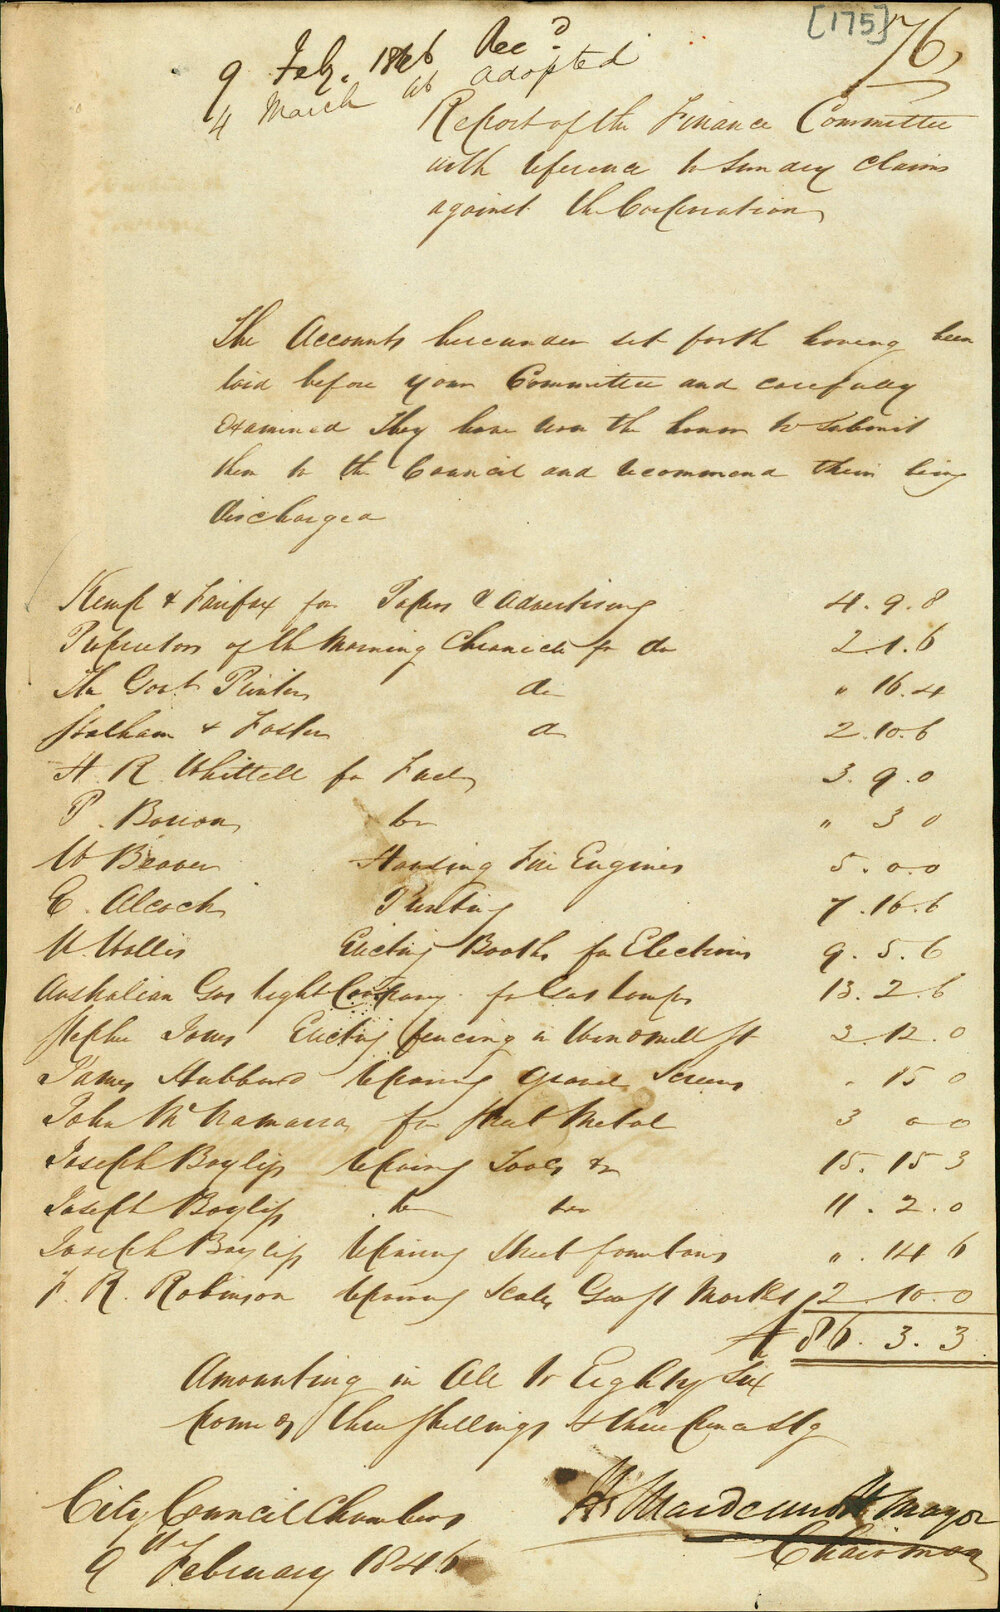 [175]
76
9 Feby. 1846 Recd.
4 March 46 adopted
Report of the Finance Committee
with reference to Sundry claims
against the Corporation
The Accounts hereunder set forth having been
laid before your Committee and carefully
examined They have now the honor to submit
them to the Council and recommend their being
discharged
Kemp & Fairfax for Papers & Advertising 4. 9. 8
Proprietors of the Morning Chronicle for do 2. 1. 6
The Govt. Printer do " 16. 4
Statham & Forster do 2. 10. 6
H. R. Whittell for Fuel 3. 9. 0
P. Boscon do " 3 0
W Beaver Housing Fire Engines 5. 0. 0
E. Alcock Printing 7. 16. 6
W. Wallis Erecting Booths for Elections 9. 5. 6
Australian Gas Light Company for Gas Lamps 13. 2. 6
Stephen Jones Erecting fencing in Windmill St 3. 12. 0
James Hubbard repairing gravel Screens . 15 0
John McNamara for Street Metal 3 0 0
Joseph Bayliss repairing Tools &c 15. 15 3
Joseph Bayliss do do 11. 2. 0
Joseph Bayliss repairing Street fountains " 14 6
F. R. Robinson repairing Scales Geo St Markets 2 10. 0
£ 86. 3. 3
Amounting in All to Eighty Six
pounds three shillings & three pence Stg
City Council Chambers
9th February 1846
H Macdermott Mayor
Chairman